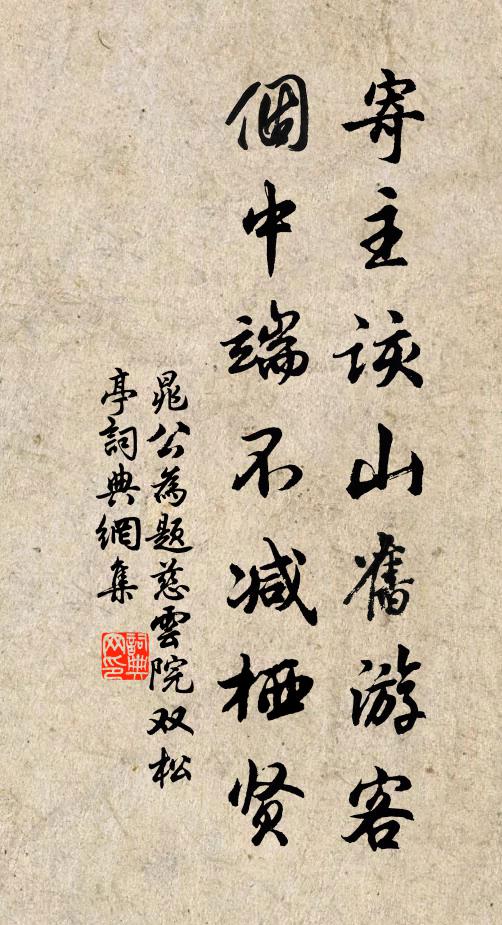 寄主谈山舊游客
個中端不减栖贤
晁公為題慈雲院双松
亭詞典網集
詞典网印